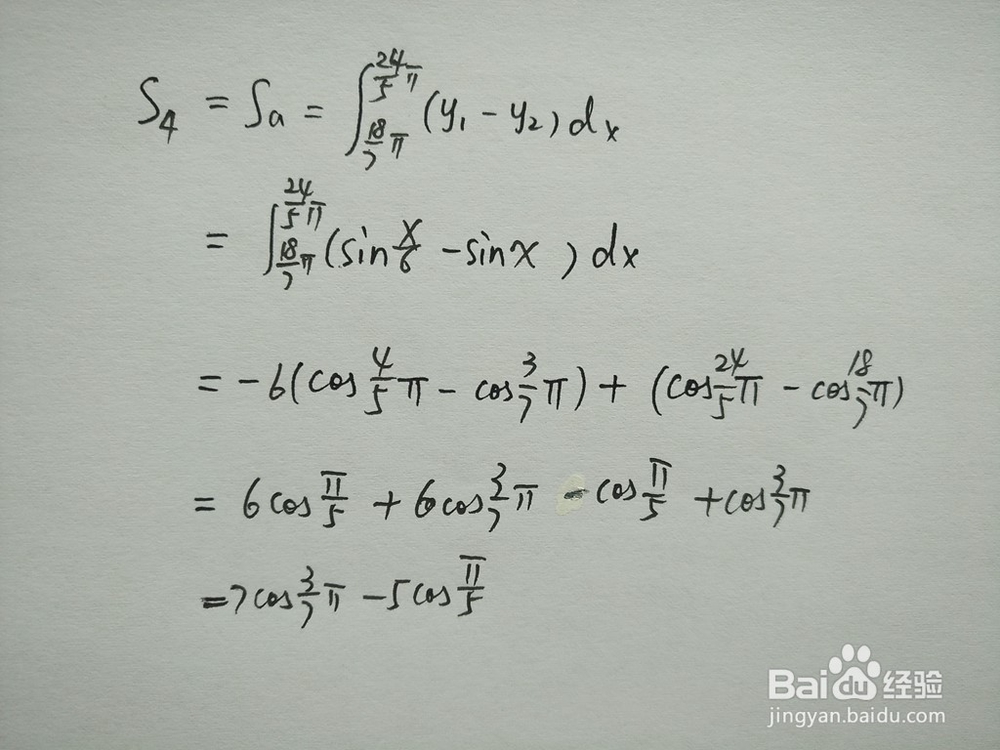 S₄ = Sₐ = ∫_{18/7 π}^{24/5 π} (y₁ - y₂) dx
= ∫_{18/7 π}^{24/5 π} (sin x/6 - sin x) dx
= -6(cos 4/5 π - cos 3/7 π) + (cos 24/5 π - cos 18/7 π)
= 6 cos π/5 + 6 cos 3/7 π - cos π/5 + cos 3/7 π
= 7 cos 3/7 π - 5 cos π/5
Baidu 经验
jingyan.baidu.com